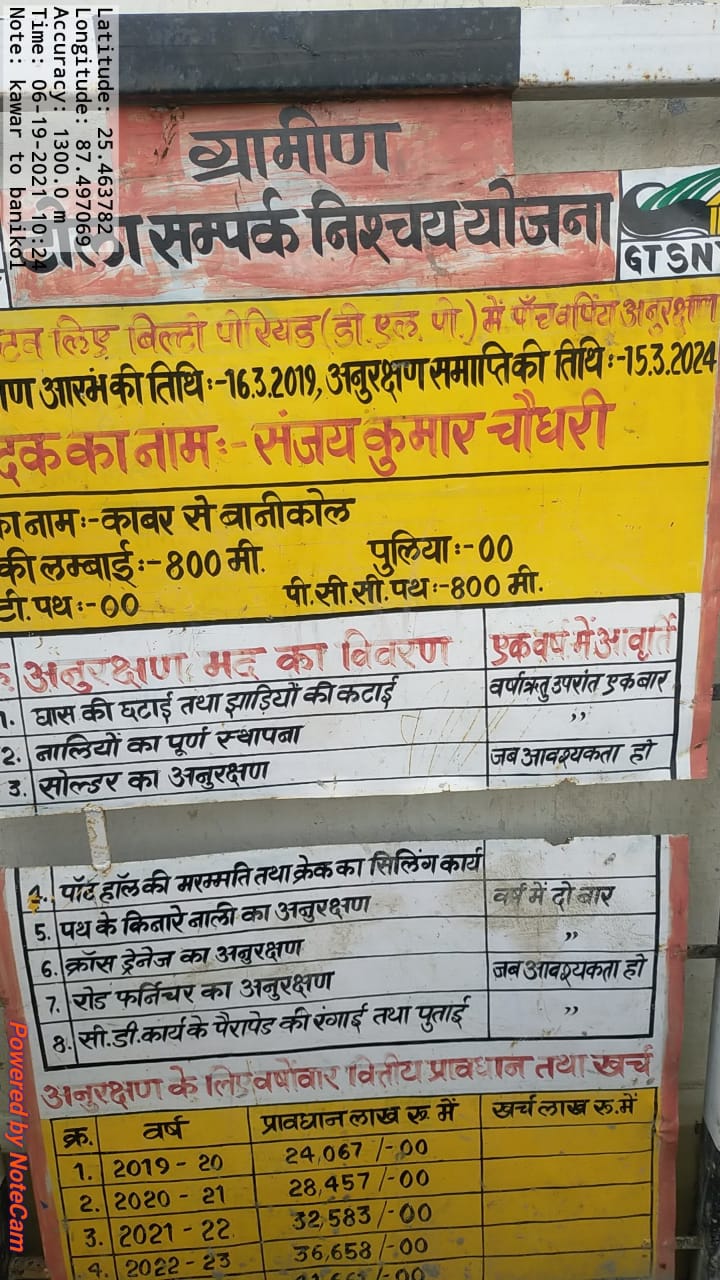 Latitude: 25.463782
Longitude: 87.497069
Accuracy: 1300.0 m
Time: 06-19-2021 10:24
Note: kawar to banikol
ग्रामीण
टोला सम्पर्क निश्चय योजना
GTSNY
लिए बिल्टी पीरियड (डी.एल.पी.) में पाँचवर्षिय अनुरक्षण
ण आरंभ की तिथि :-16.3.2019, अनुरक्षण समाप्ति की तिथि :-15.3.2024
दक का नाम :- संजय कुमार चौधरी
का नाम :- काबर से बानीकोल
की लम्बाई :- 800 मी. पुलिया :- 00
टी. पथ :- 00 पी.सी.सी. पथ :- 800 मी.
अनुरक्षण मद का विवरण एक वर्ष में आवृति
1. घास की छटाई तथा झाड़ियों की कटाई वर्षाऋतु उपरांत एक बार
2. नालियों का पूर्ण स्थापना ,,
3. सोल्डर का अनुरक्षण जब आवश्यकता हो
4. पॉट हॉल की मरम्मति तथा क्रेक का सिलिंग कार्य
5. पथ के किनारे नाली का अनुरक्षण वर्ष में दो बार
6. क्रॉस ड्रेनेज का अनुरक्षण ,,
7. रोड फर्निचर का अनुरक्षण जब आवश्यकता हो
8. सी.डी. कार्य के पैरापेड की रंगाई तथा पुताई ,,
अनुरक्षण के लिए वर्षोवार वित्तीय प्रावधान तथा खर्च
क्र. वर्ष प्रावधान लाख रू में खर्च लाख रू. में
1. 2019 - 20 24,067 /-00
2. 2020 - 21 28,457 /-00
3. 2021 - 22 32,583 /-00
4. 2022 - 23 36,658 /-00
Powered by NoteCam